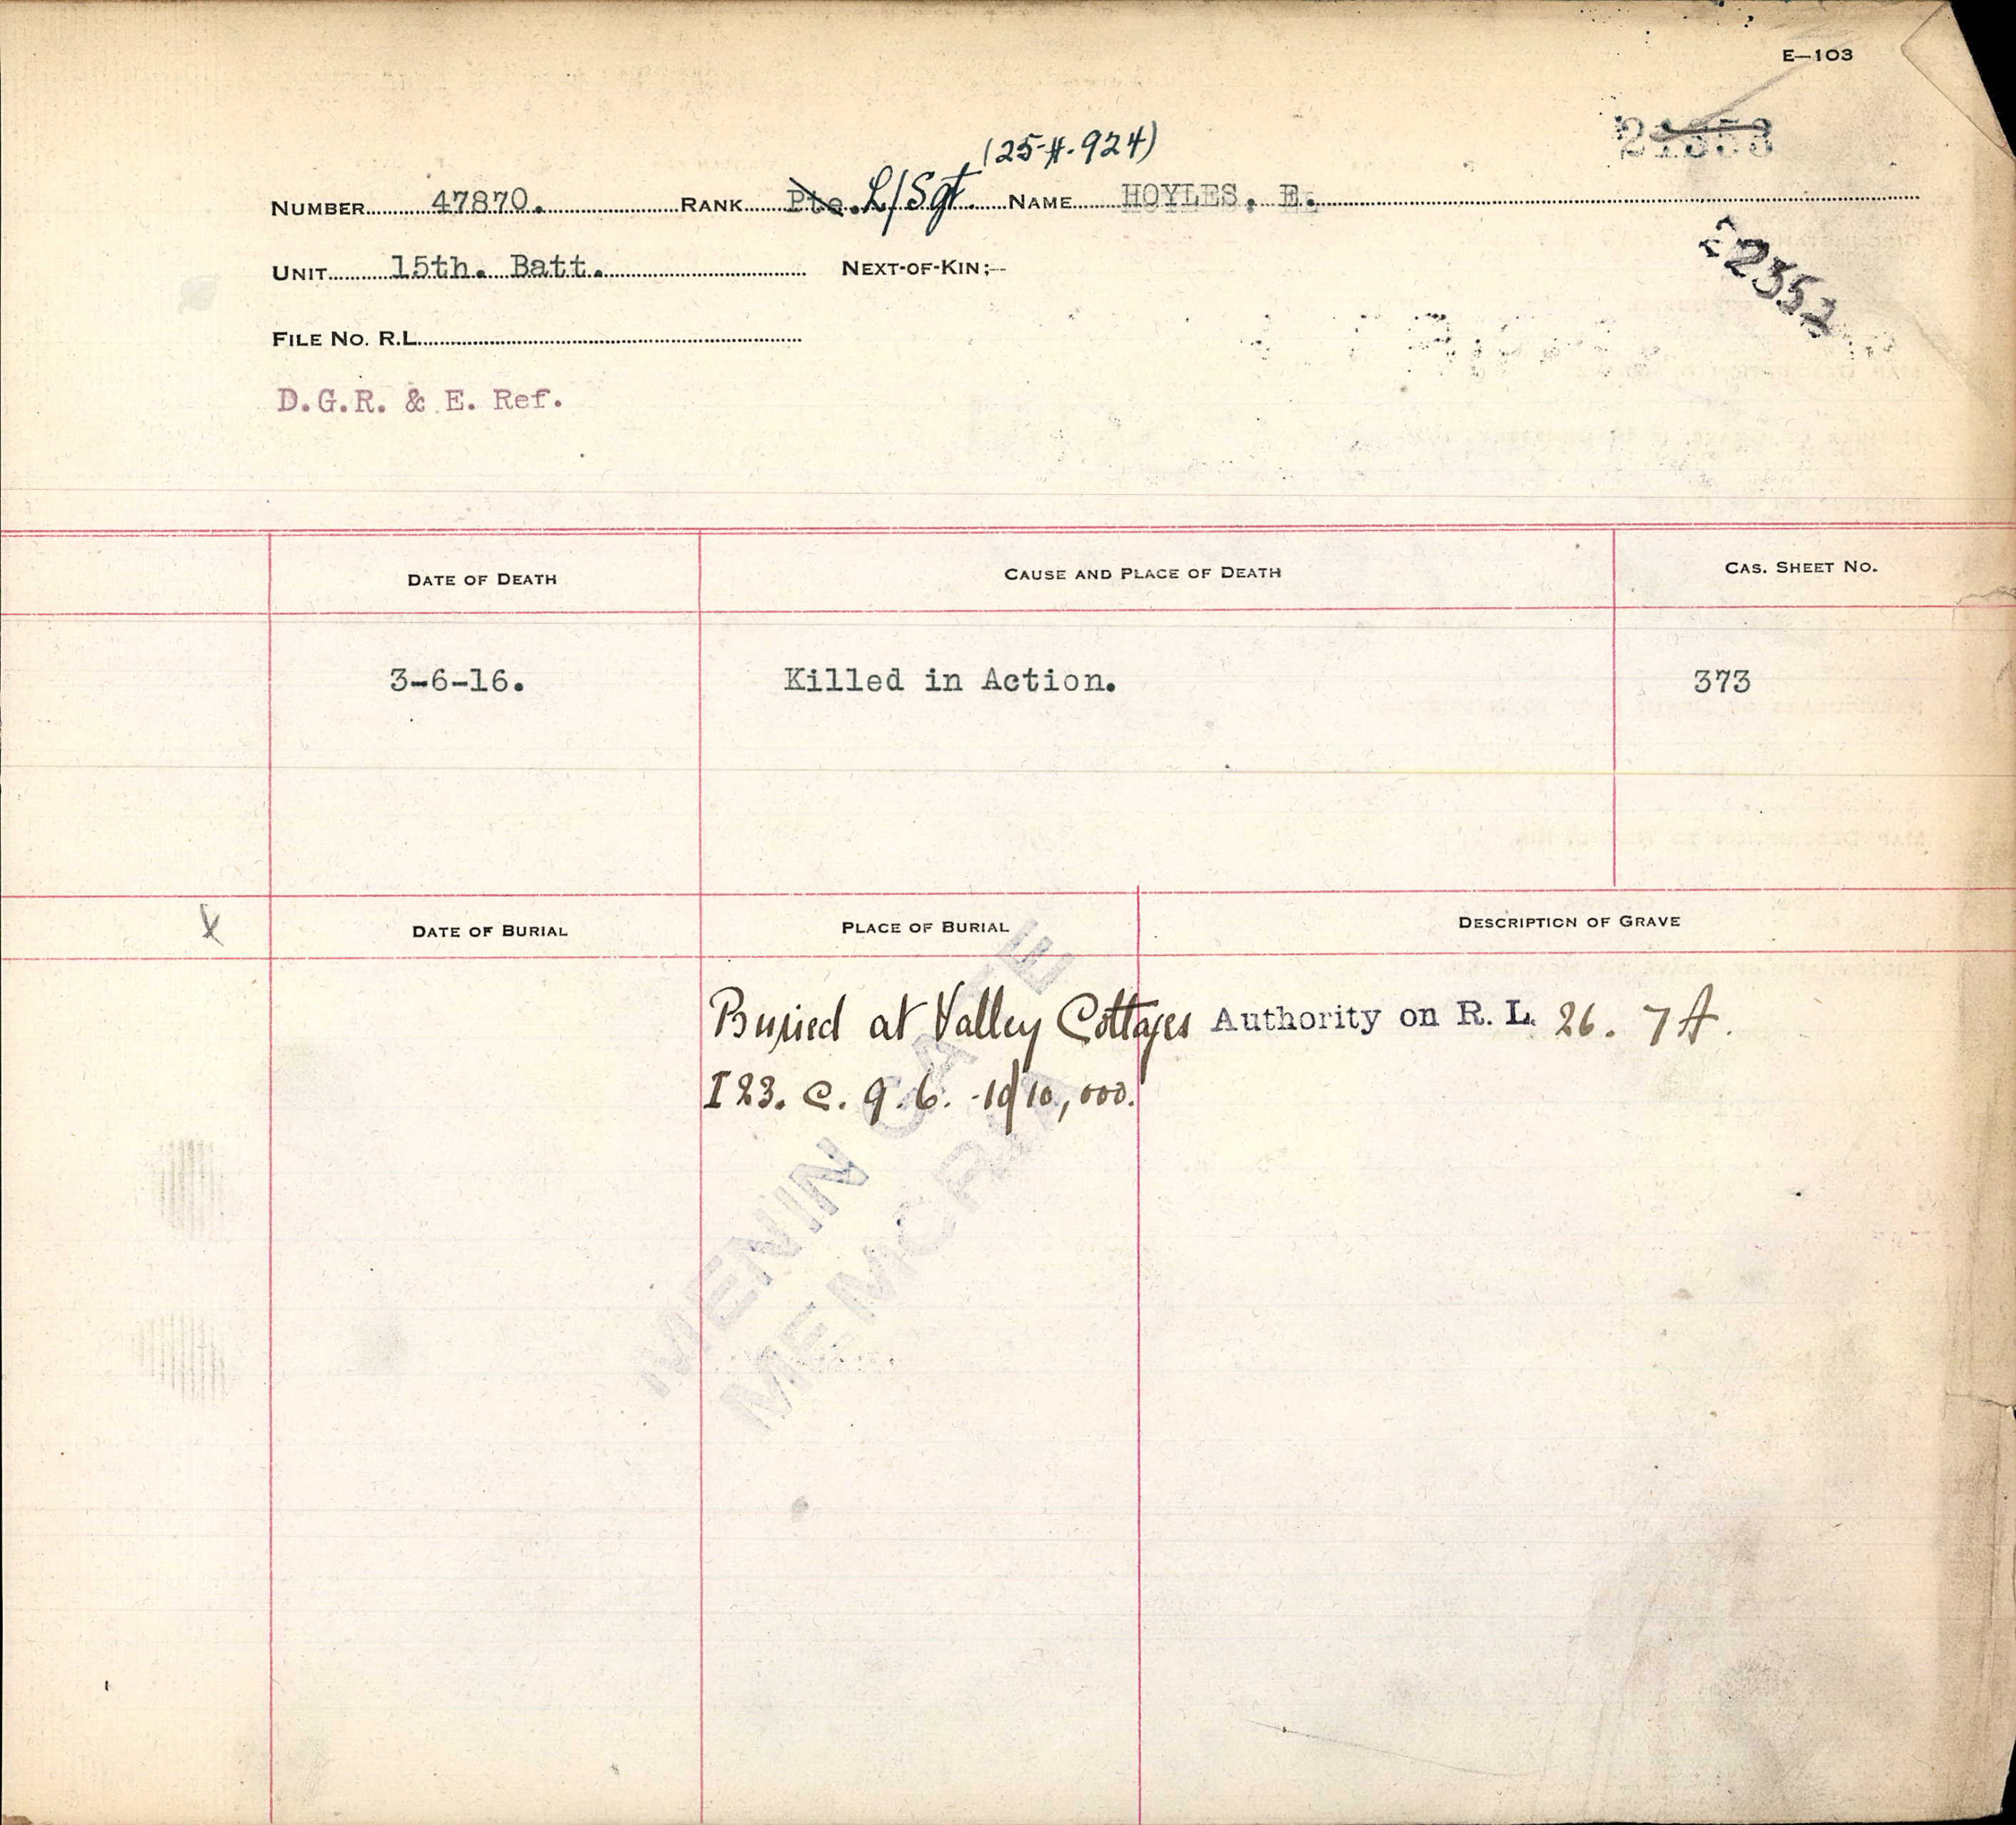 E—103
(25-H-924)
NUMBER 47870. RANK Pte. L/Sgt. NAME HOYLES, E.
22352
UNIT 15th. Batt. NEXT-OF-KIN:—
FILE No. R.L.
D.G.R. & E. Ref.
DATE OF DEATH CAUSE AND PLACE OF DEATH CAS. SHEET No.
3-6-16. Killed in Action. 373
DATE OF BURIAL PLACE OF BURIAL DESCRIPTION OF GRAVE
Buried at Valley Cottages Authority on R. L. 26. 7A.
I 23. c. 9. 6. 10,000.
MENIN GATE
MEMORIAL